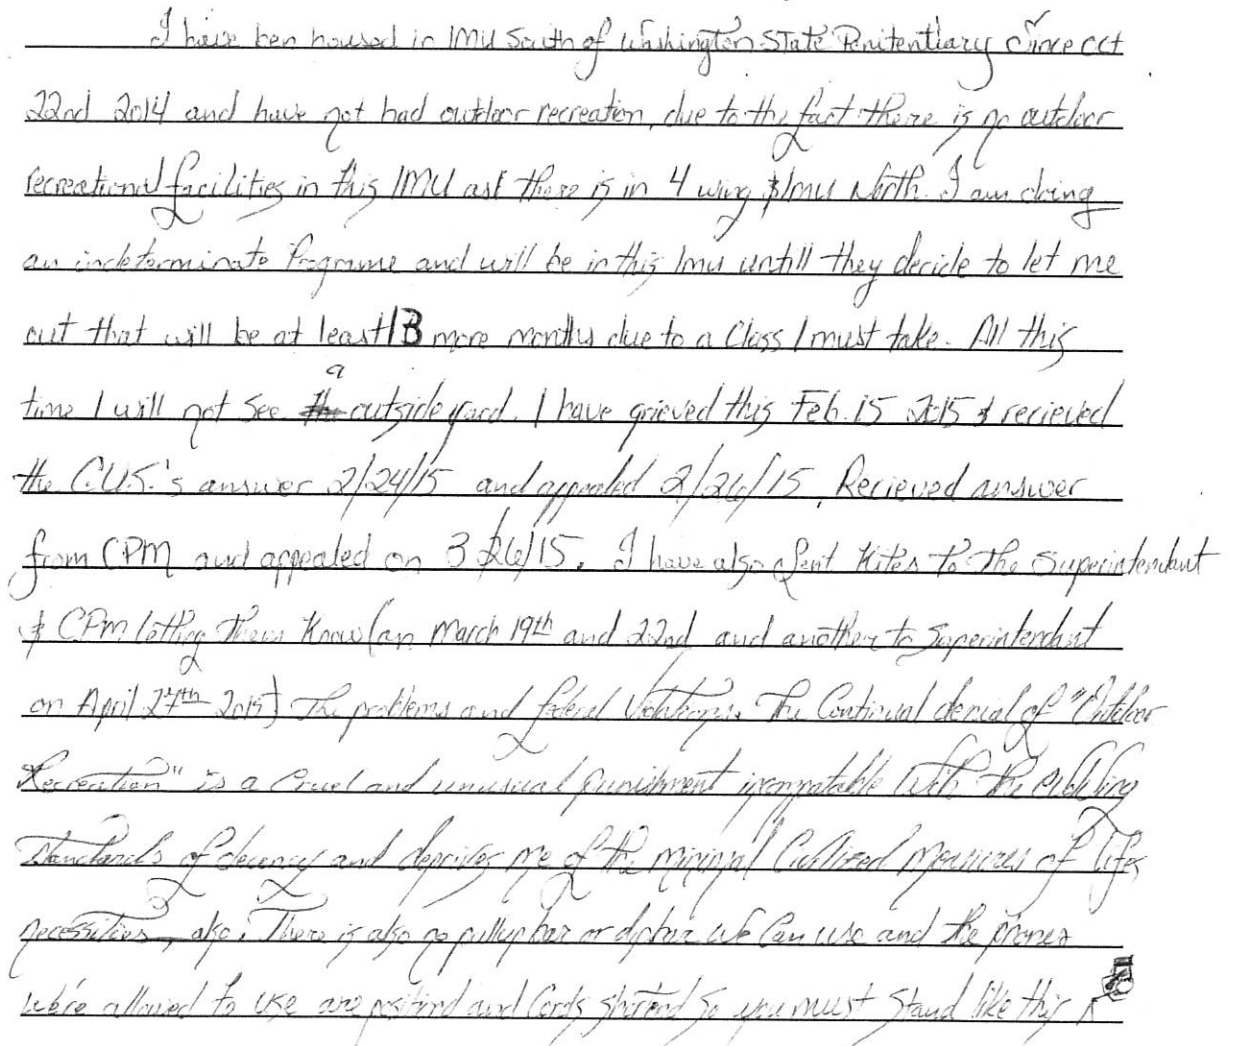 I have ben housed in IMU South of Washington State Penitentiary Since oct
22nd 2014 and have not had outdoor recreation, due to the fact there is no outdoor
recreational facilities in this IMU as there is in 4 wing & Imu North. I am doing
an indeterminate Programe and will be in this Imu untill they decide to let me
out that will be at least 13 more months due to a Class I must take. All this
time I will not see a outside yard. I have grieved this Feb. 15 2015 & recieved
the C.U.S.'s answer 2/24/15 and appealed 2/26/15. Recieved answer
from CPM and appealed on 3/26/15. I have also sent Kites to The Superintendant
& CPM letting them Know (on March 19th and 22nd and another to Superintendant
on April 2015) The problems and federal Violations. The Continual denial of "Outdoor
Recreation" is a Cruel and unusual punishment incompatable With the evolving
Standards of decency and deprives me of the minimal Civilized Measures of lifes
necessities, also. There is also no pullup bar or dipbar We Can use and the phones
we're allowed to use are and Cords so you must Stand like this